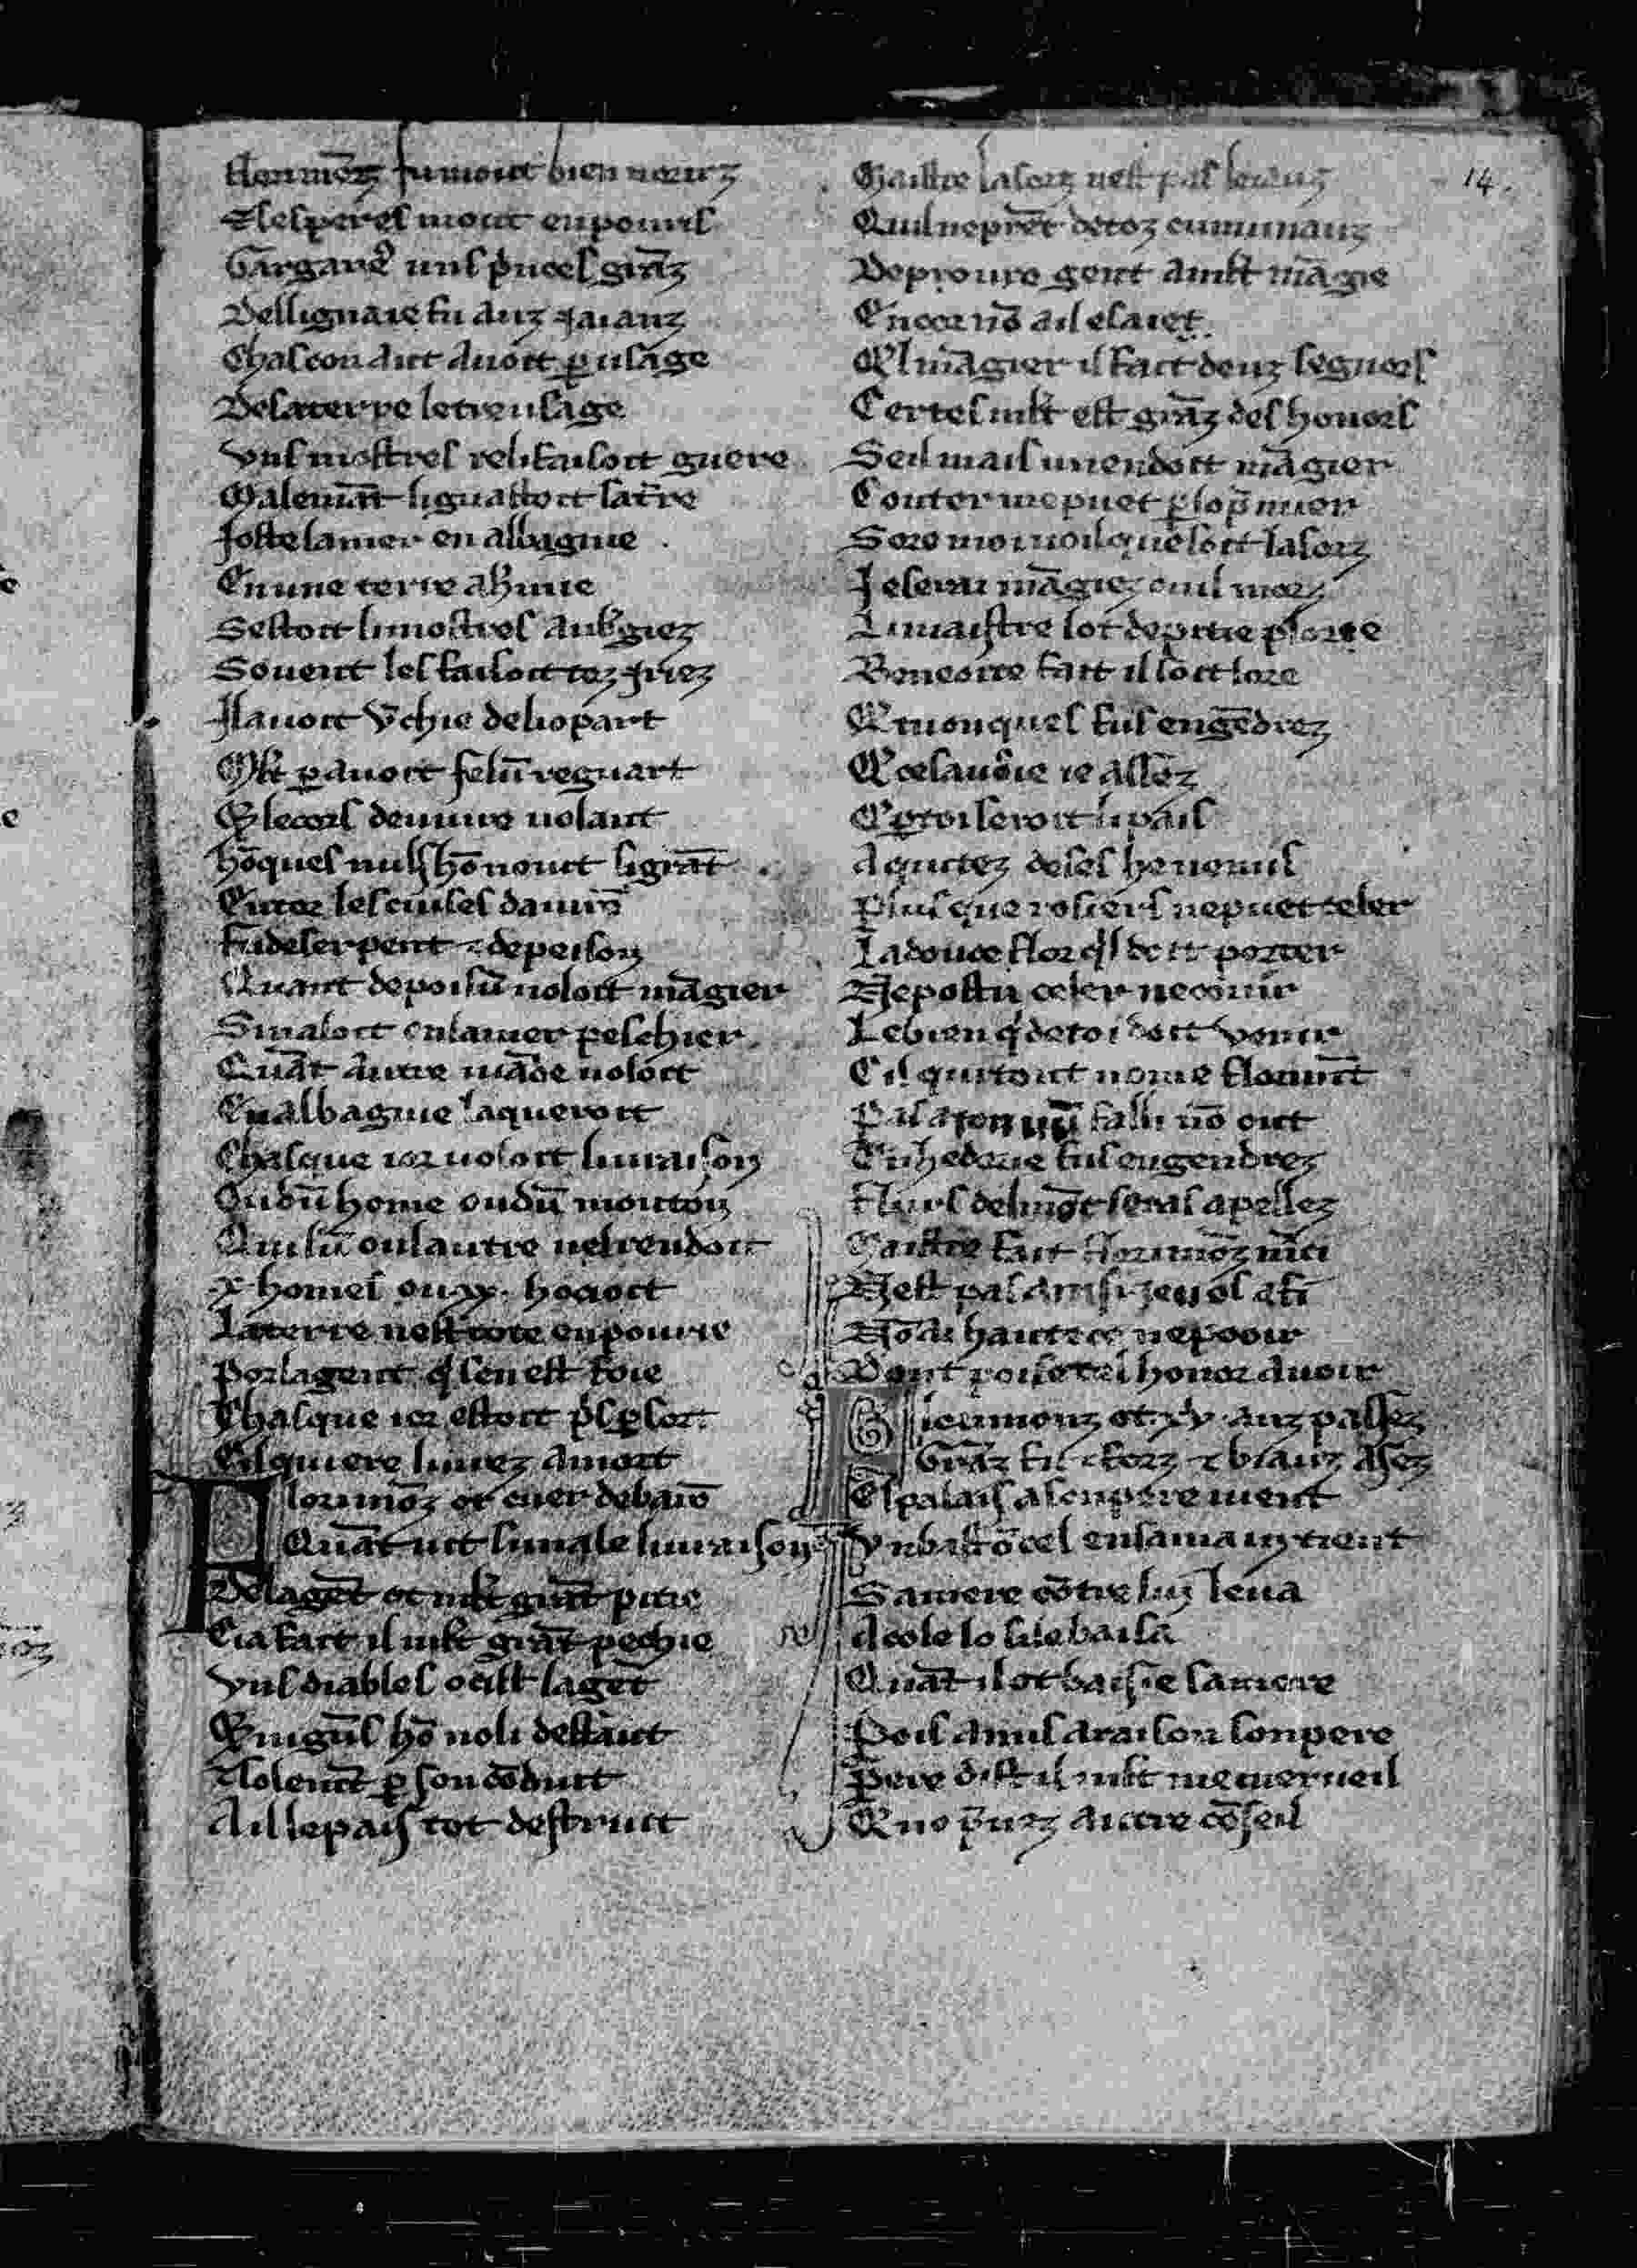 florimōz fu mout bien noriz
⁊ les peres mout enpouris
Garganeꝰ uns pucel grāz
Del lignaie fu auz iaianz
Chascon an auoit ꝑ usage
De la terre le treusage
Vns mostres reli faisoit guere
Malemāt li guastoit sa tr̄re
Joste la mer en albagine
En une terre a
Sestoit li mostres aub̄giez
Souent les faisoit toz iriez
Il auoit v̄ chie de liopart
Mlt ꝑ auoit felū reguart
⁊ le cors de nuiue uolant
hō ques nuls hō nouit si grāt
Entor les cuises
Fu de serpent ⁊ de peison
Quant de poisū uoloit māgier
Si naloit en la mer peschier
Quāt autre uiāde uoloit
En albagine la queroit
Chasque ior uoloit liuraison
Ou dū home ou dū mouton
Qui lū ou lautre ne li rendoit
.x. homes ou .xx. hocioit
La terre nest tote enpourie
Por la gent q̄ sen est foie
Chasque ior estoit p̄s ꝑ sor
Cil qui ere liurez a mort
Florimōz ot cuer de barō
Quāt uit li male liuraison
De la gēt ot mlt grāt pitie
Cia fait il mlt grāt pechie
Vns diables ocist la gēt
⁊ nigūs hō no li deffant
Dolenēt ꝑ son cōduit
Ai le pais tot destruit
Maistre la sorz nest pas leiauz
Quil ne prēt de toz cumunauz
De proure gent ainst māgie
Encor nō a il esaiet
⁊ l māgier il fait deuz segnors
Certes mlt est grāz deshonors
Seil mais unen doit māgier
Conter me puet ꝑ lo p̄mier
Sore moi uoil que soit la sorz
Je serai māgiez ou il morz
Li maistre lot de pitie plore
Beneoite fait il soit lore
⁊ tu on quel fus engēdrez
⁊ ce sauoie ie assez
⁊ ꝑ toi seroit li pais
Aquitez de ses henemis
Plus que rosiers ne puet celer
La douce flor q̄l doit porter
Ne post tu celer ne courir
Le bien q̄ de toi doit venir
Cil qui tont nome florimōt
Pas a ton nū falli nō ont
En hedone fus engendrez
Flurs del mōt seras apellez
Maistre fait florimōz
Nest pas ainsi
Nō ai hautece ne pooir
Dont poisse tel honor auoir
Florimonz ot .xv. anz passez
Grāz fu ⁊ forz ⁊ biauz asez
El palais a son pere uient
Vn bastōcel en sa main tient
Sa mere cōtre lui leua
Acole lo si le baisa
Quāt il ot baisie sa mere
Pois a mis a raison son pere
Pere dist il mlt me merueil
⁊ no p̄nez autre cōseil
14.